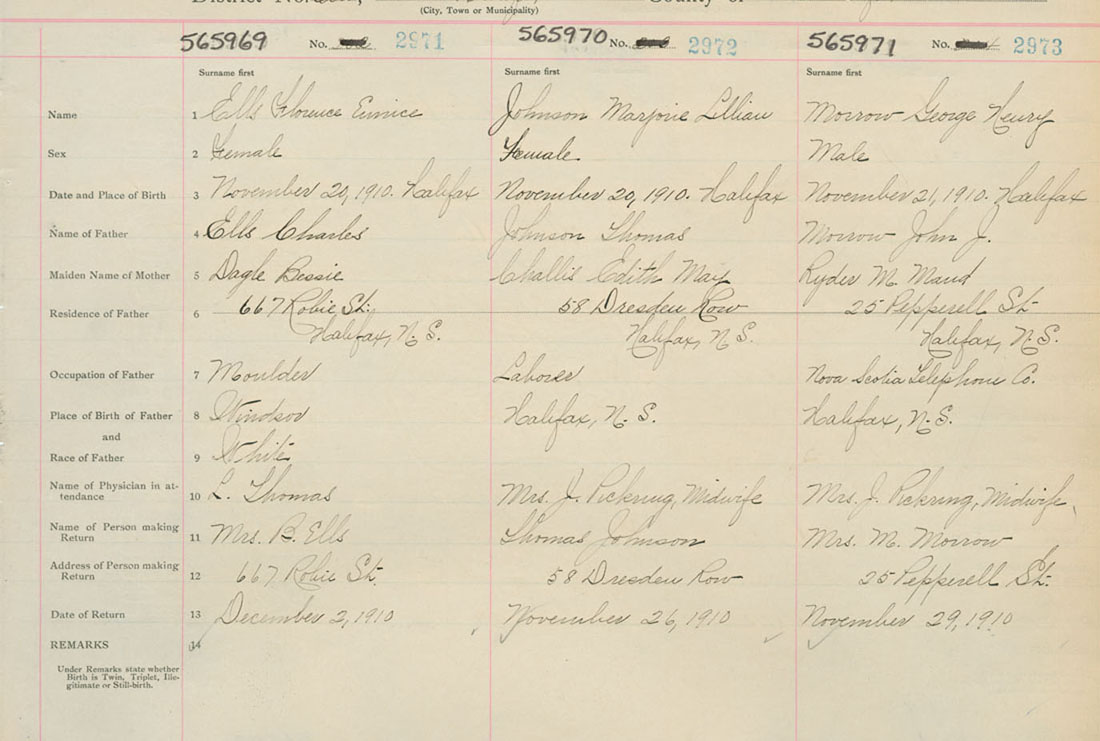 District No.
County of
(City, Town or Municipality)
565969 No. 2971 565970 No. 2972 565971 No. 2973
Surname first Surname first Surname first
Name 1 Ells Florence Eunice Johnson Marjorie Lillian Morrow George Henry
Sex 2 Female Female Male
Date and Place of Birth 3 November 20, 1910. Halifax November 20, 1910. Halifax November 21, 1910. Halifax
Name of Father 4 Ells Charles Johnson Thomas Morrow John J.
Maiden Name of Mother 5 Dagle Bessie Challis Edith May Ryder M. Maud
Residence of Father 6 667 Robie St. 58 Dresden Row 25 Pepperell St.
Halifax, N.S. Halifax, N.S. Halifax, N.S.
Occupation of Father 7 Moulder Laborer Nova Scotia Telephone Co.
Place of Birth of Father 8 Windsor Halifax, N.S. Halifax, N.S.
and
Race of Father 9 White
Name of Physician in at-
tendance 10 L. Thomas Mrs. J. Pickring, Midwife Mrs. J. Pickring, Midwife,
Name of Person making
Return 11 Mrs. B. Ells Thomas Johnson Mrs. M. Morrow
Address of Person making
Return 12 667 Robie St. 58 Dresden Row 25 Pepperell St.
Date of Return 13 December 2, 1910 November 26, 1910 November 29, 1910
REMARKS 14
Under Remarks state whether
Birth is Twin, Triplet, Ille-
gitimate or Still-birth.